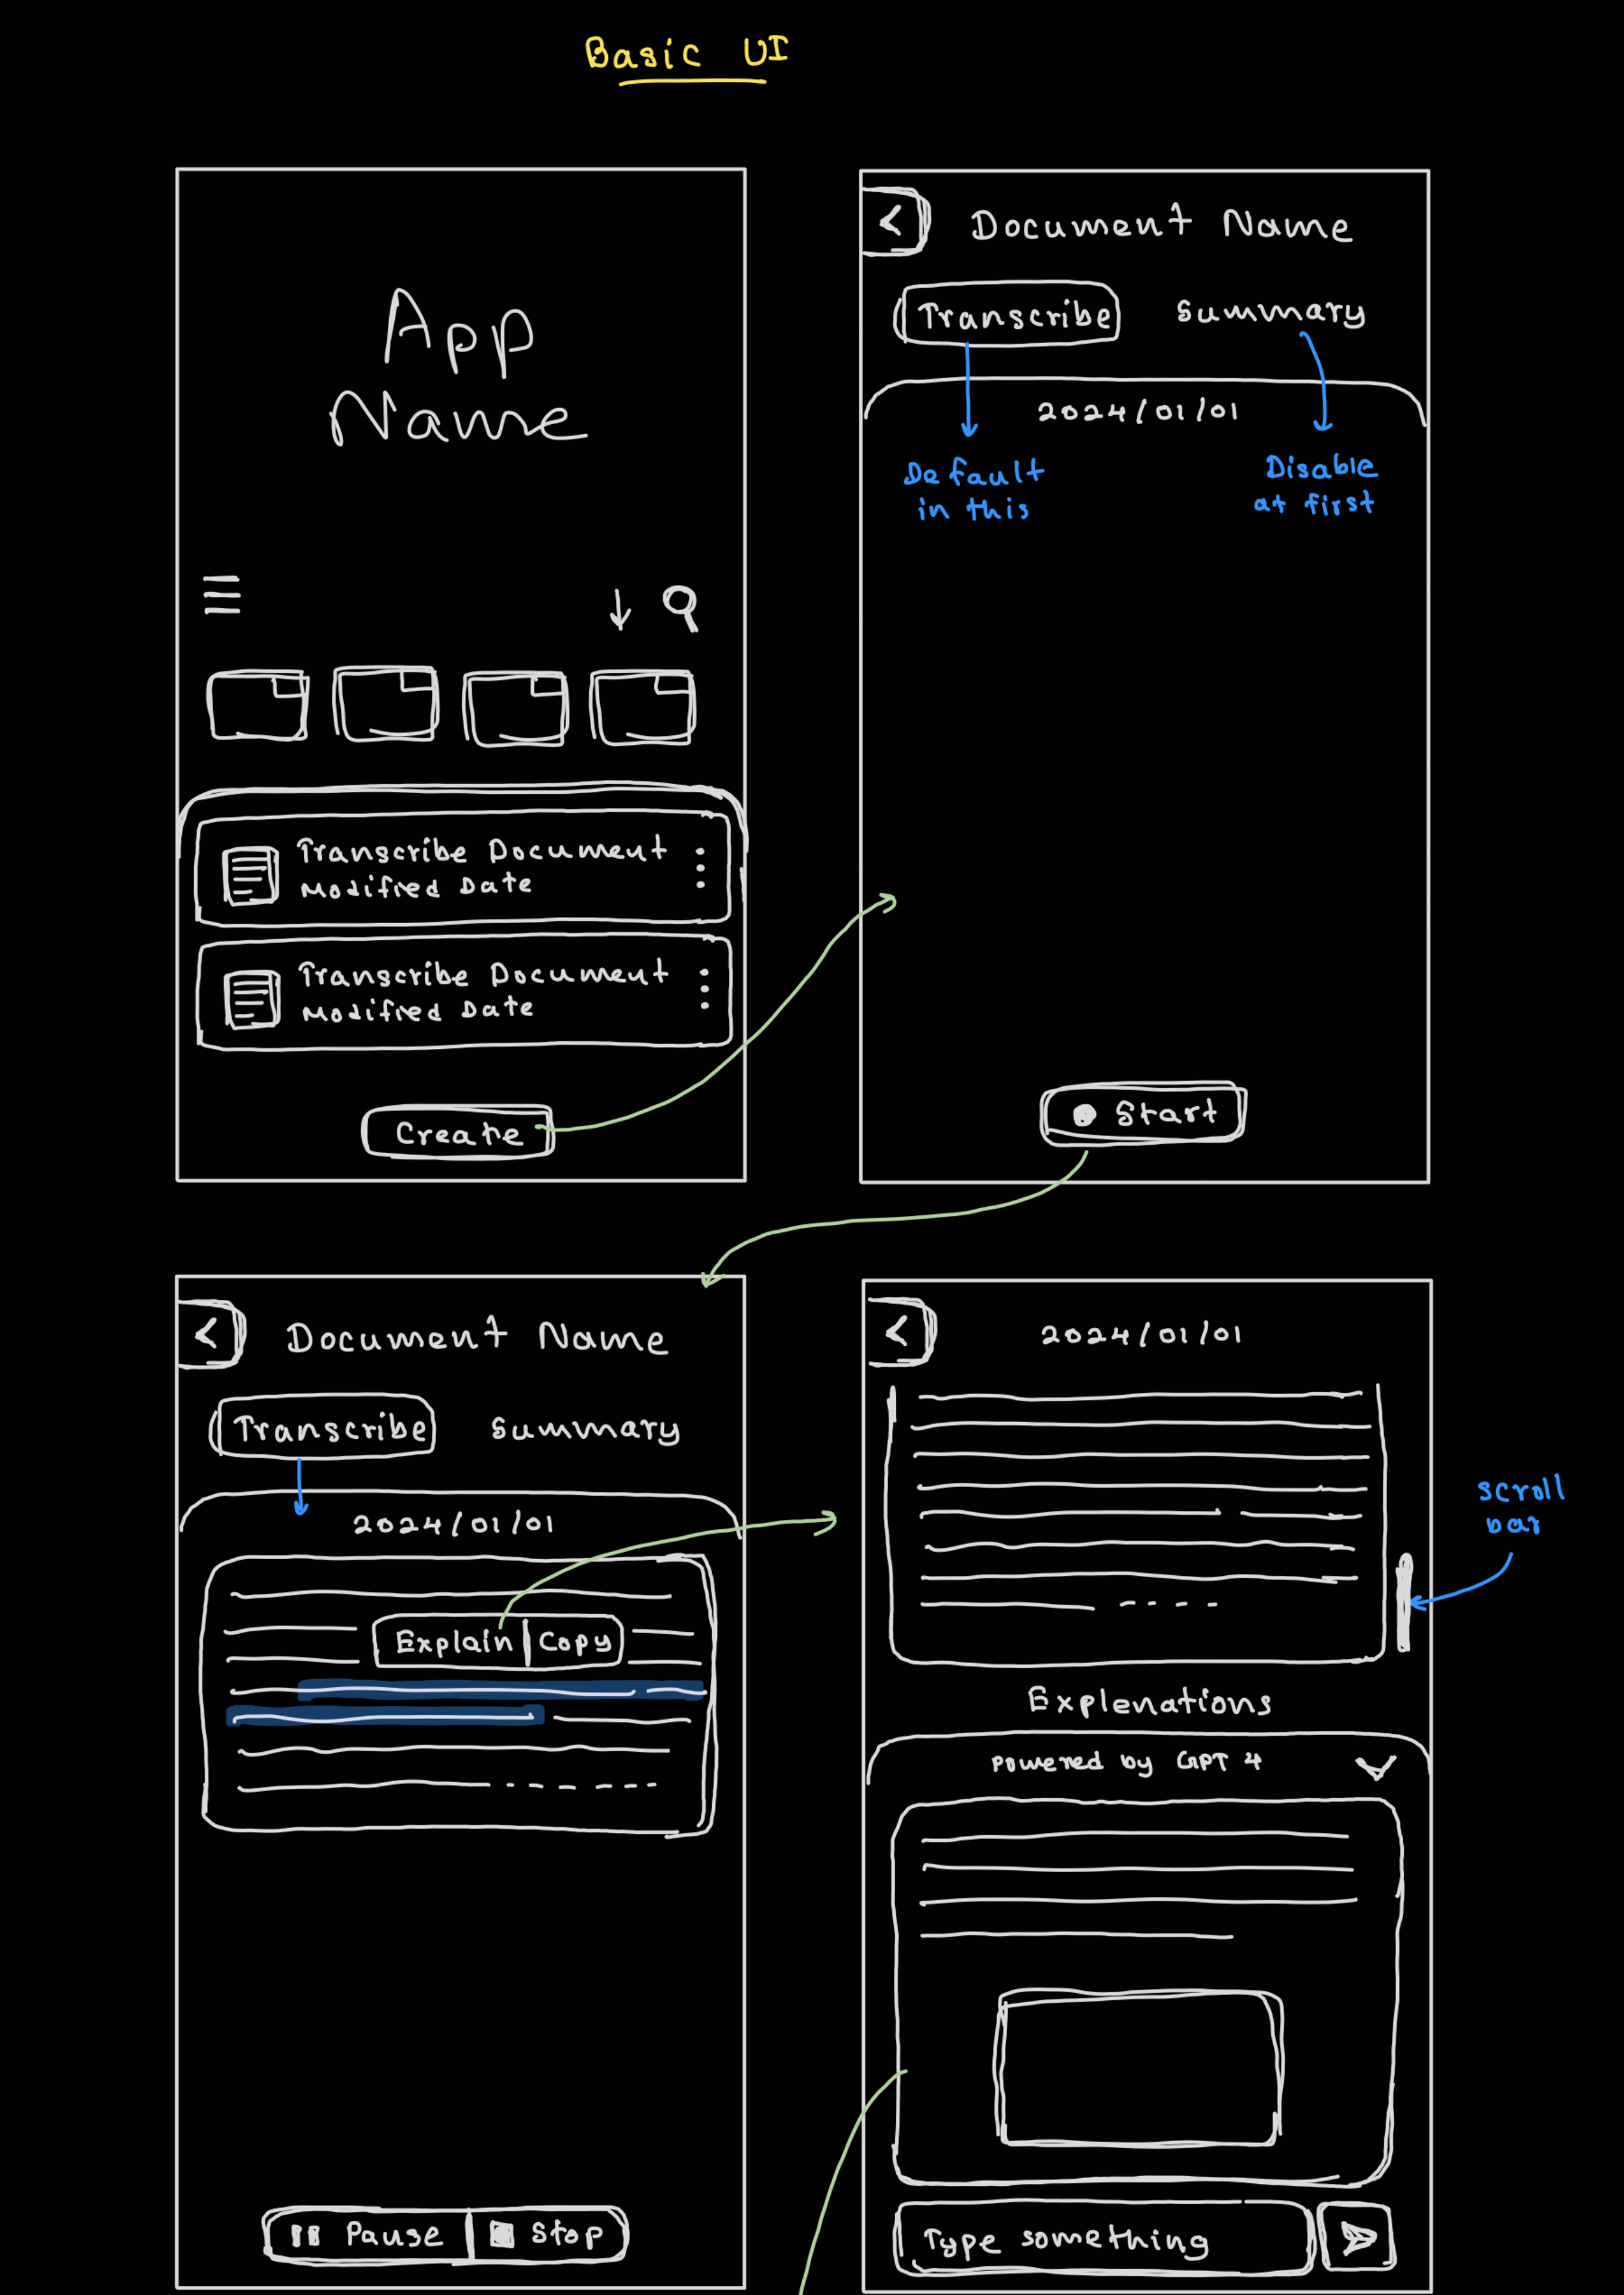 Basic UI
App
Name
Transcribe Document
Modified Date
Transcribe Document
Modified Date
Create
Document Name
Transcribe
Summary
2024/01/01
Default
in this
Disable
at first
Start
Document Name
Transcribe
Summary
2024/01/01
Explain
Copy
Pause
Stop
2024/01/01
scroll
bar
Explenations
Powered by GPT 4
Type something